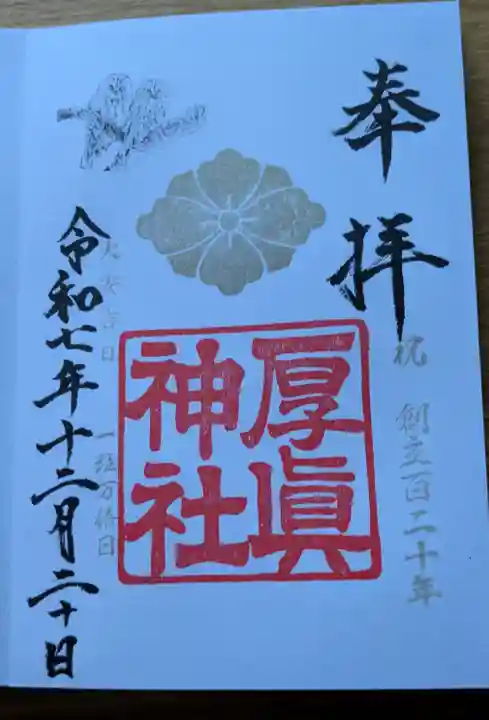 奉拝
祝 創立百二十年
厚眞
神社
大安吉日
一粒万倍日
令和七年十二月二十日